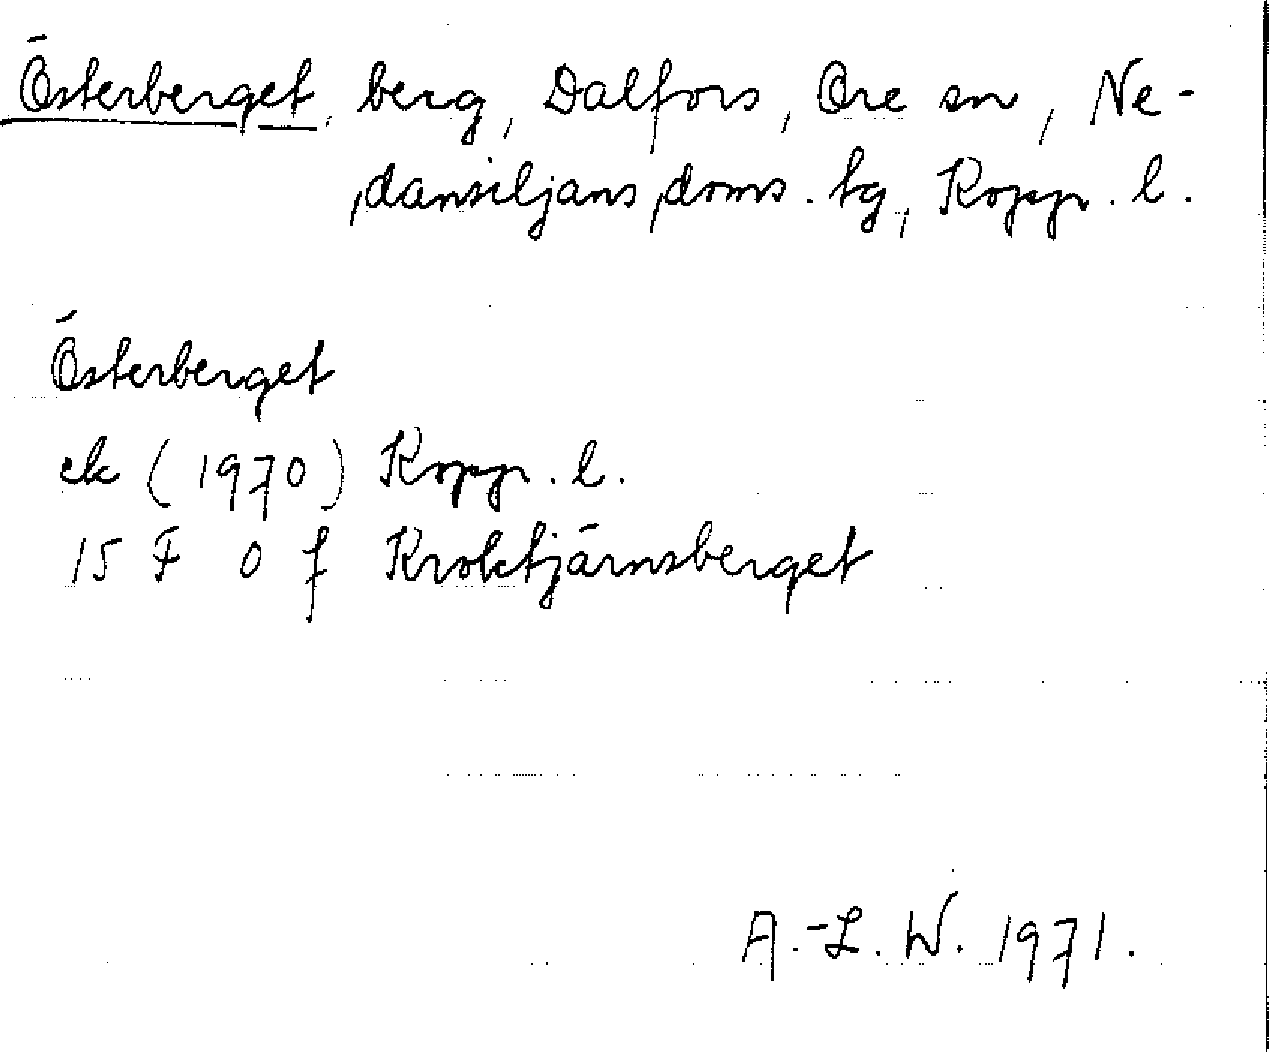 Österberget, berg, Dalfors, Ore sn, Ne-
dansiljans doms. tg, Kopp. l.
Österberget
ek (1970) Kopp. l.
15 F 0 f Kroktjärnsberget
A.-L. W. 1971.